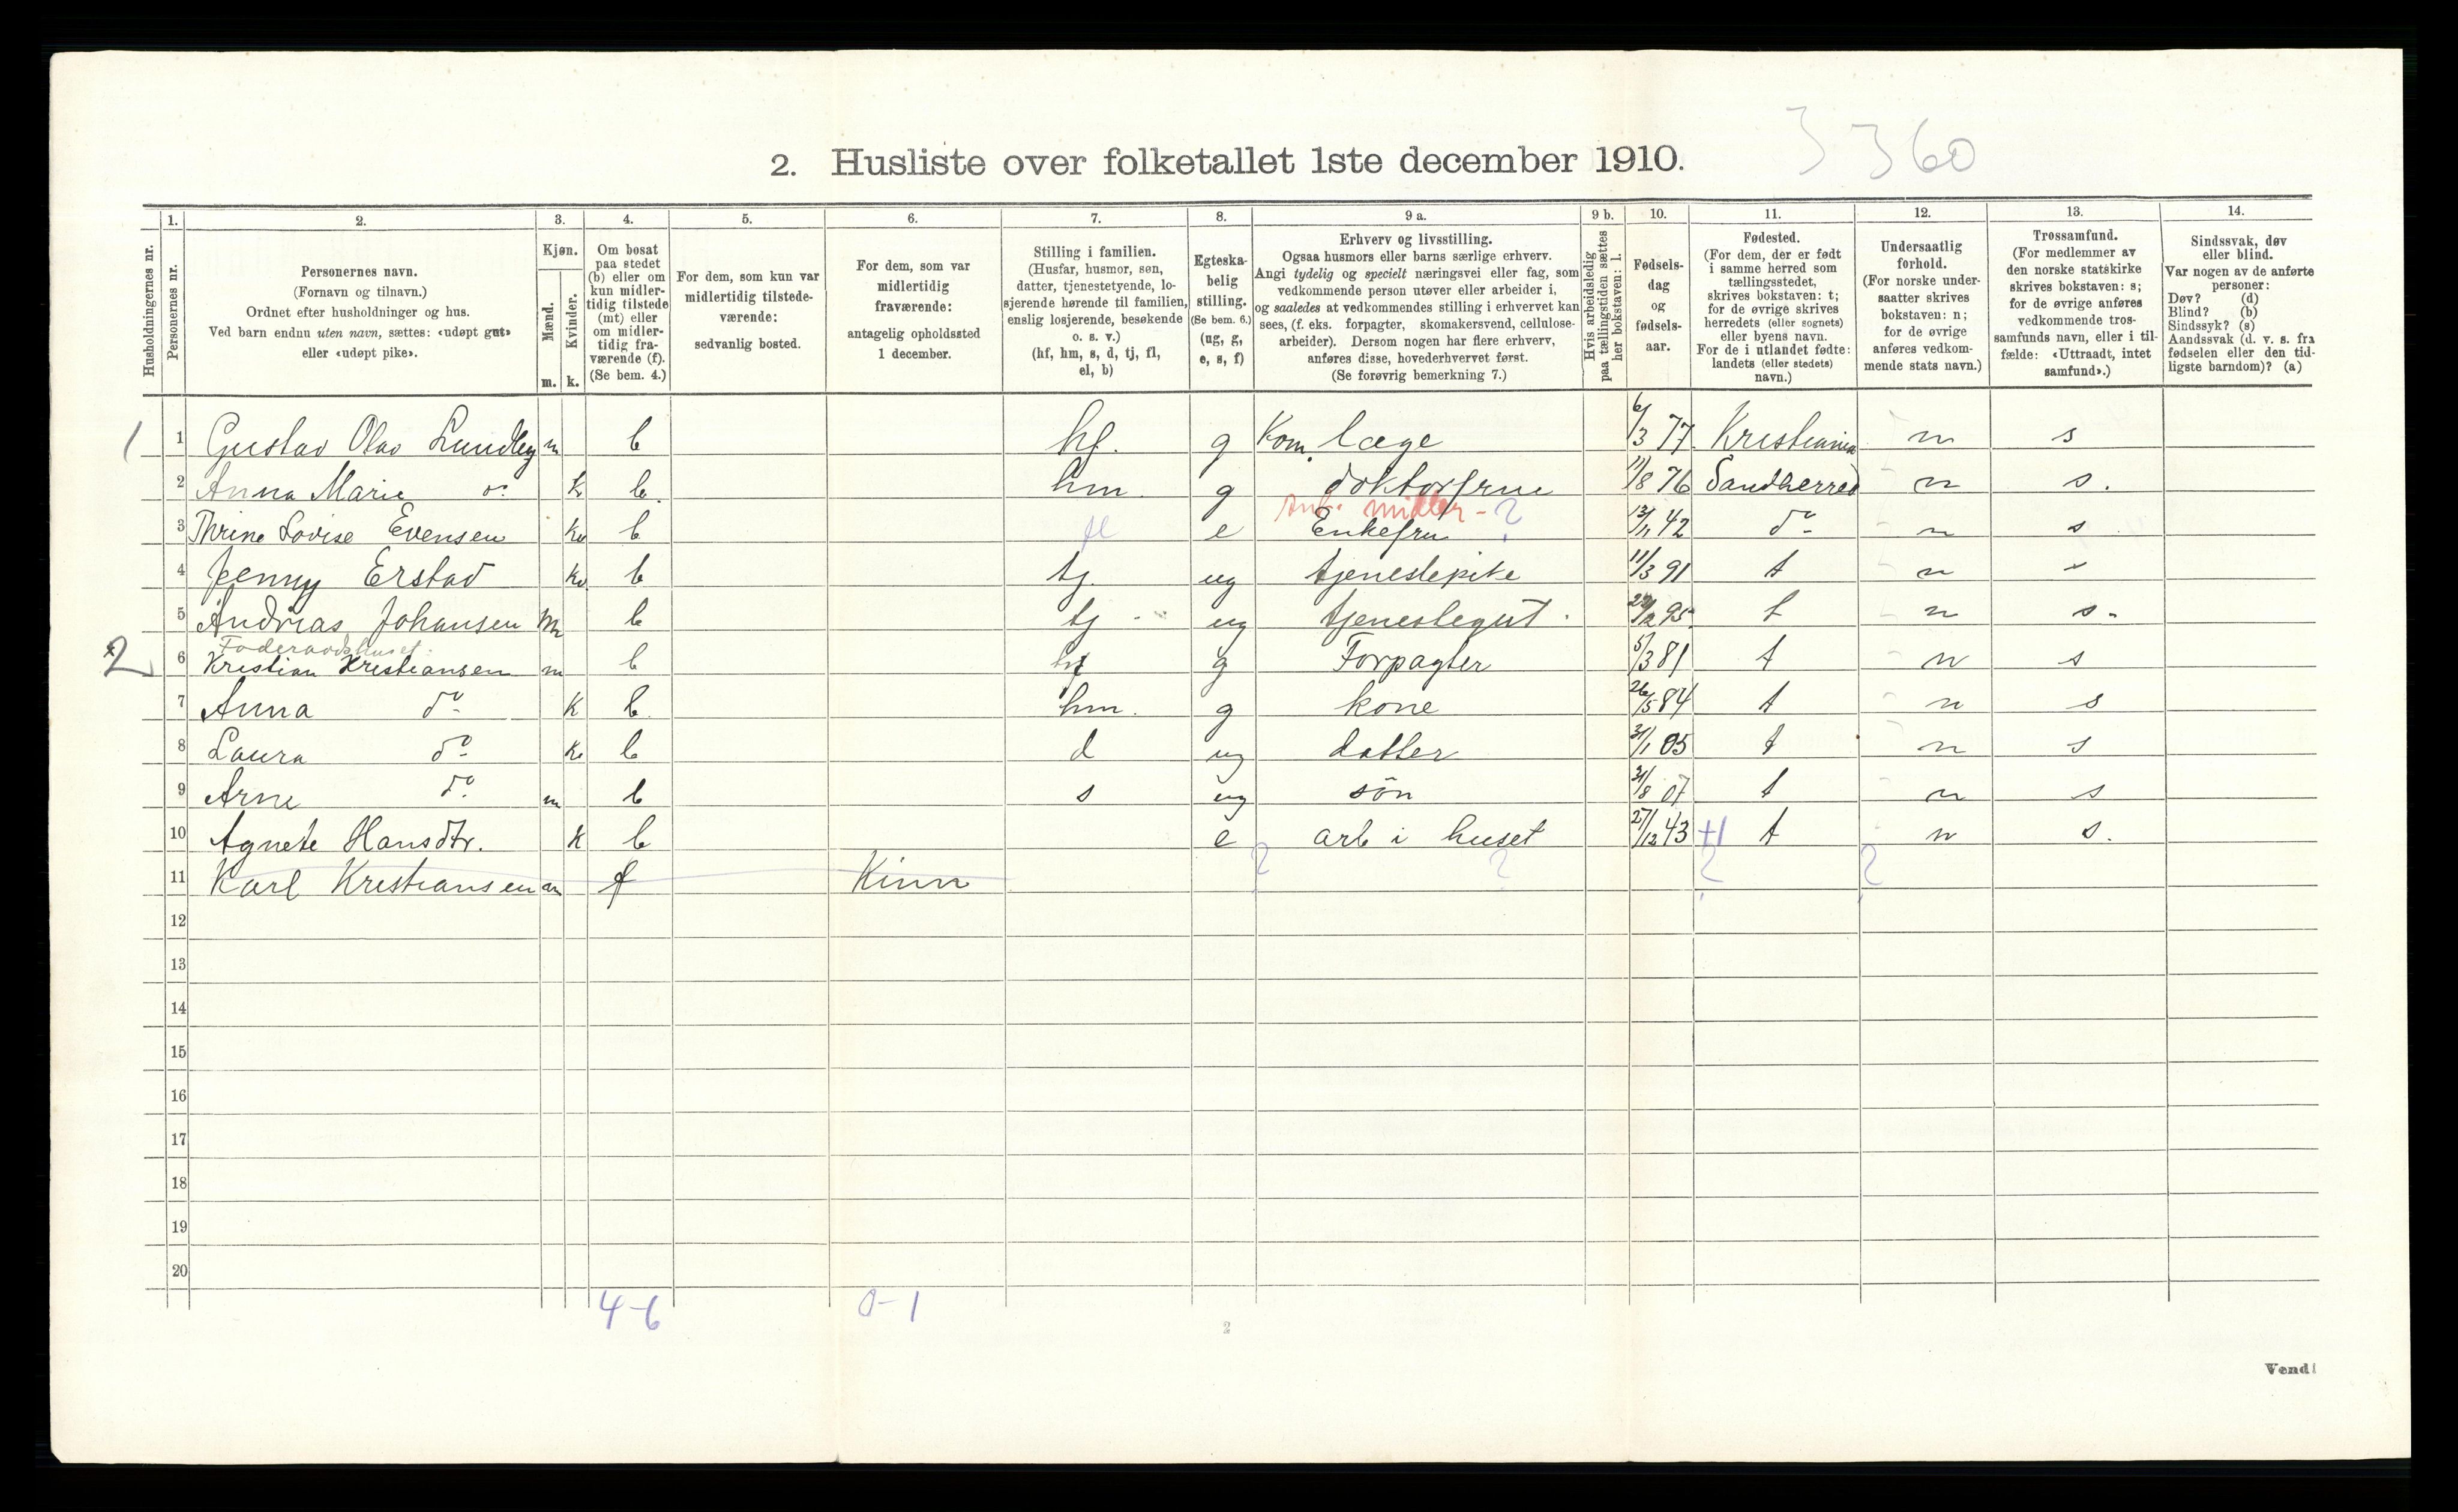 3 360
2. Husliste over folketallet 1ste december 1910.
1. 2. 3. 4. 5. 6. 7. 8. 9 a. 9 b. 10. 11. 12. 13. 14.
Husholdningernes nr.
Personernes nr.
Personernes navn.
(Fornavn og tilnavn.)
Ordnet efter husholdninger og hus.
Ved barn endnu uten navn, sættes: «udøpt gut»
eller «udøpt pike».
Kjøn.
Mænd.
Kvinder.
m. k.
Om bosat
paa stedet
(b) eller om
kun midler-
tidig tilstede
(mt) eller
om midler-
tidig fra-
værende (f).
(Se bem. 4.)
For dem, som kun var
midlertidig tilstede-
værende:
sedvanlig bosted.
For dem, som var
midlertidig
fraværende:
antagelig opholdssted
1 december.
Stilling i familien.
(Husfar, husmor, søn,
datter, tjenestetyende, lo-
sjerende hørende til familien,
enslig losjerende, besøkende
o. s. v.)
(hf, hm, s, d, tj, fl,
el, b)
Egteska-
belig
stilling.
(Se bem. 6.)
(ug, g,
e, s, f)
Erhverv og livsstilling.
Ogsaa husmors eller barns særlige erhverv.
Angi tydelig og specielt næringsvei eller fag, som
vedkommende person utøver eller arbeider i,
og saaledes at vedkommendes stilling i erhvervet kan
sees, (f. eks. forpagter, skomakersvend, cellulose-
arbeider). Dersom nogen har flere erhverv,
anføres disse, hovederhvervet først.
(Se forøvrig bemerkning 7.)
Hvis arbeidsledig
paa tællingstiden sættes
her bokstaven: l.
Fødsels-
dag
og
fødsels-
aar.
Fødested.
(For dem, der er født
i samme herred som
tællingsstedet,
skrives bokstaven: t;
for de øvrige skrives
herredets (eller sognets)
eller byens navn.
For de i utlandet fødte:
landets (eller stedets)
navn.)
Undersaatlig
forhold.
(For norske under-
saatter skrives
bokstaven: n;
for de øvrige
anføres vedkom-
mende stats navn.)
Trossamfund.
(For medlemmer av
den norske statskirke
skrives bokstaven: s;
for de øvrige anføres
vedkommende tros-
samfunds navn, eller i til-
fælde: «Uttraadt, intet
samfund».)
Sindssvak, døv
eller blind.
Var nogen av de anførte
personer:
Døv? (d)
Blind? (b)
Sindssyk? (s)
Aandssvak (d. v. s. fra
fødselen eller den tid-
ligste barndom)? (a)
1 1 Gustav Olav Lundby m b hf. g Kom. læge 6/3 77 Kristiania n s
2 Anna Marie do k b. hm. g doktorfrue 11/8 76 Sandherred n s.
midler - ?
3 Thrine Lovise Evensen kv b fl e Enkefru 13/11 42 do n s
4 Jenny Erstad kv b tj. ug tjenestepike 11/3 91 t n s
5 Andrias Johansen m b tj ug tjenestegut 95 t n s.
Føderaadshuset:
2 6 Kristian Kristiansen m b hf g Forpagter 5/3 81 t n s
7 Anna do k b. hm. g kone 26/5 84 t n s
8 Laura do kv b d ug datter 31/1 05 t n s
9 Arne do m b s ug søn 31/8 07 t n s
10 Agnete Hansdtr. k b e arb i huset 27/12 43 t n s.
11 Karl Kristiansen m f Kinn ? ? ? ?
12
13
14
15
16
17
18
19
20
4-6 0-1
2
Vend!